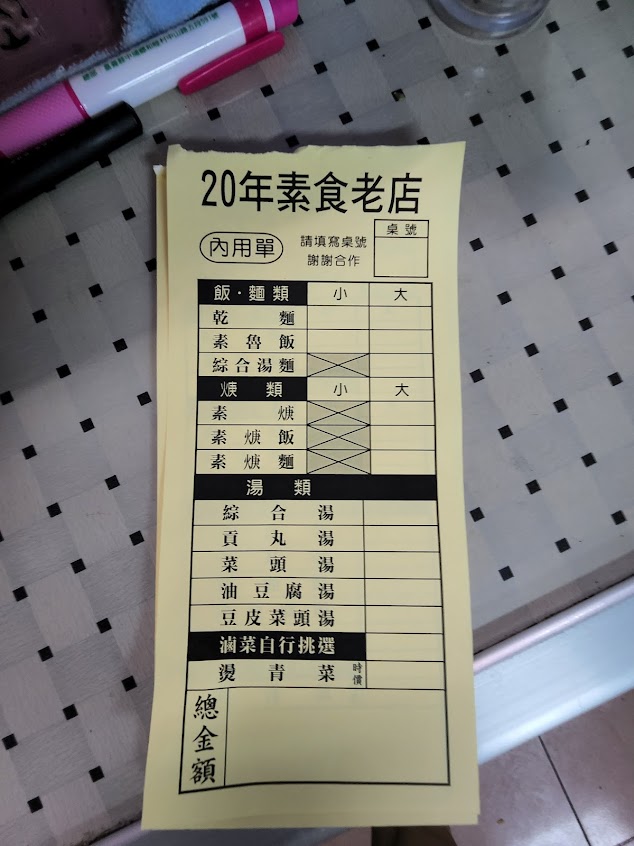 20年素食老店
內用單
請填寫桌號
謝謝合作
桌號
飯·麵類 小 大
乾麵
素魯飯
綜合湯麵
焿類 小 大
素焿
素焿飯
素焿麵
湯類
綜合湯
貢丸湯
菜頭湯
油豆腐湯
豆皮菜頭湯
滷菜自行挑選
燙青菜 時價
總金額